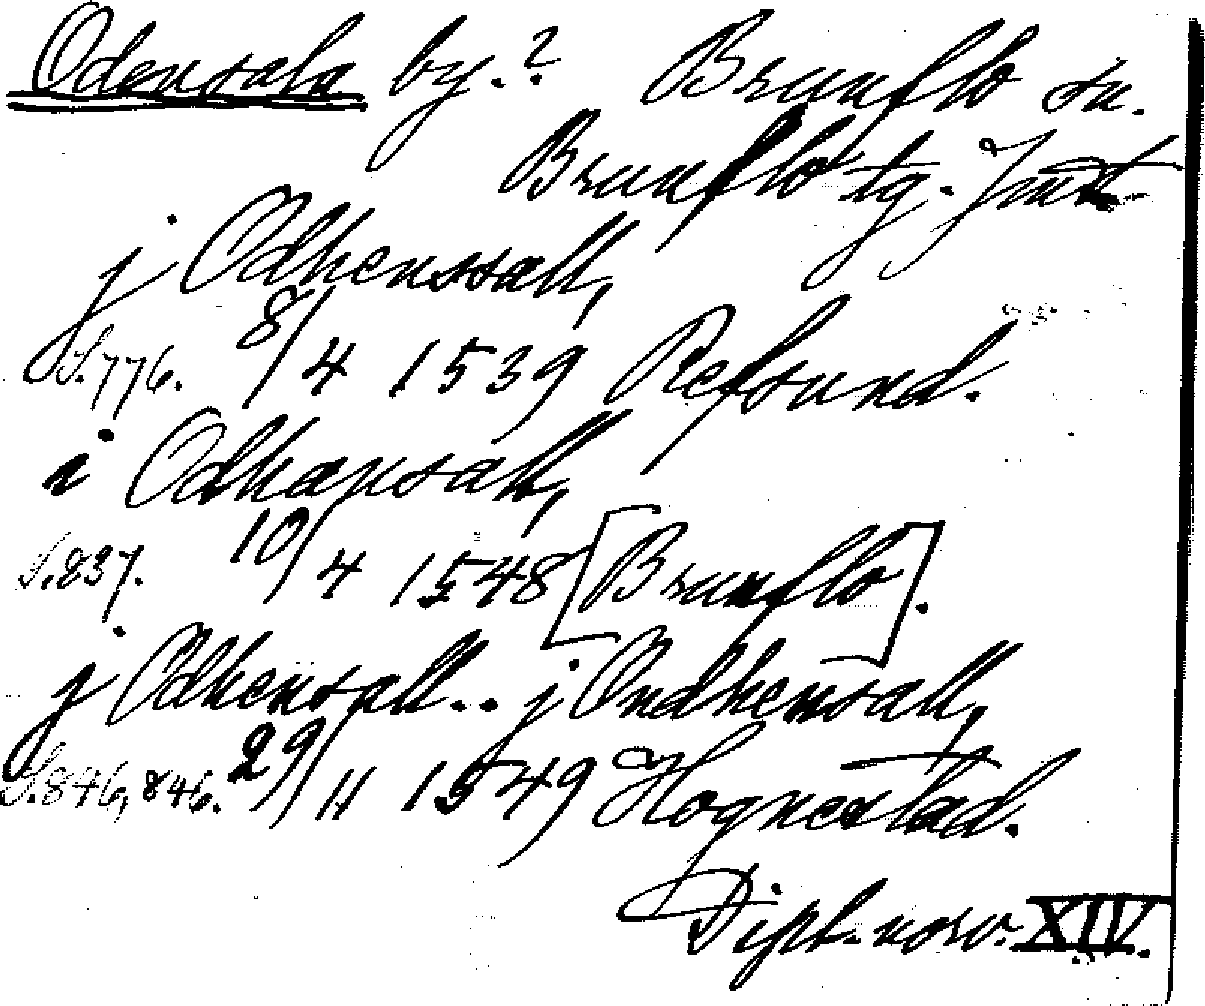 Odensala by.? Brunflo sn.
Brunflo tg. Jmt.
j Odhenssall,
S.776. 8/4 1539 Refsund.
i Odhænsall,
S.837. 10/4 1548 [Brunflo].
j Odhensall.. j Ondhensall,
S.846, 846. 29/11 1549 Hognestad.
Dipl. norv. XIV.